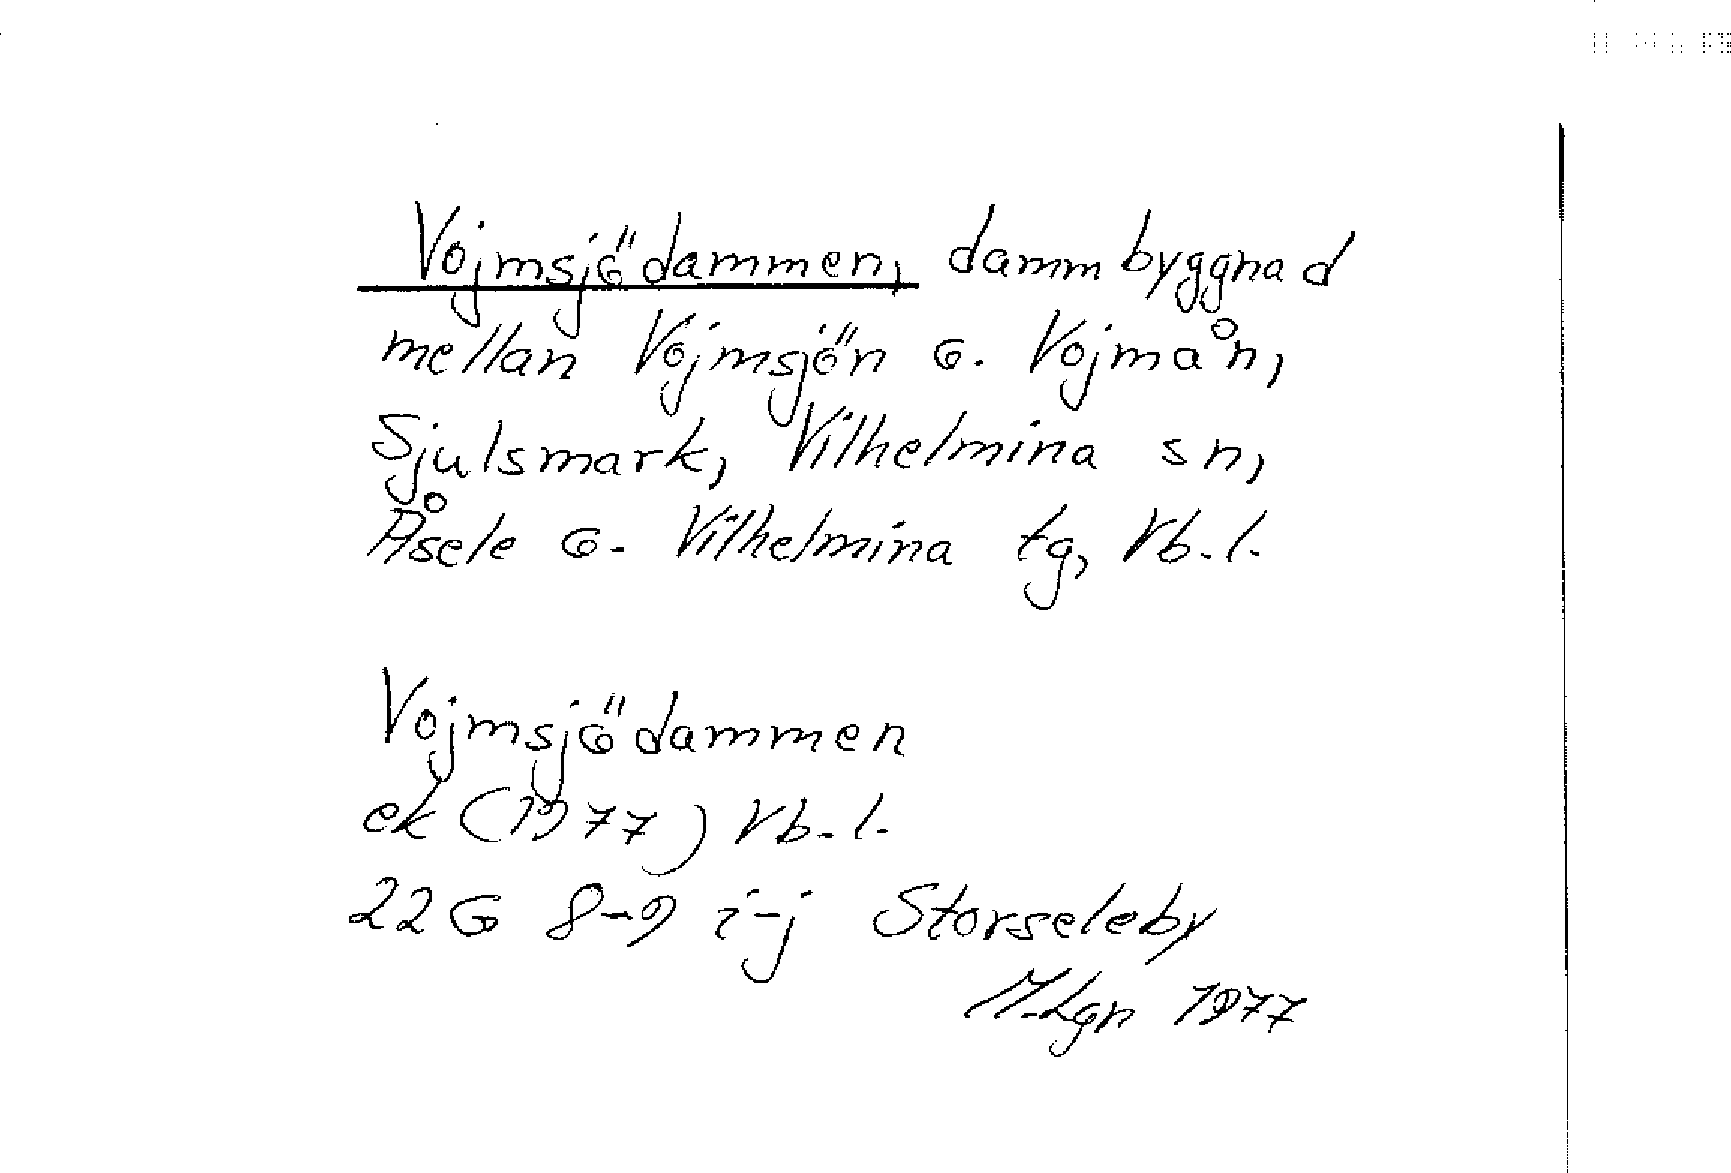 Vojmsjödammen, dammbyggnad
mellan Vojmsjön o. Vojmån,
Sjulsmark, Vilhelmina sn,
Åsele o. Vilhelmina tg, Vb.l.
Vojmsjödammen
ek (1977) Vb.l.
22G 8-9 i-j Storseleby
M.Lgn 1977